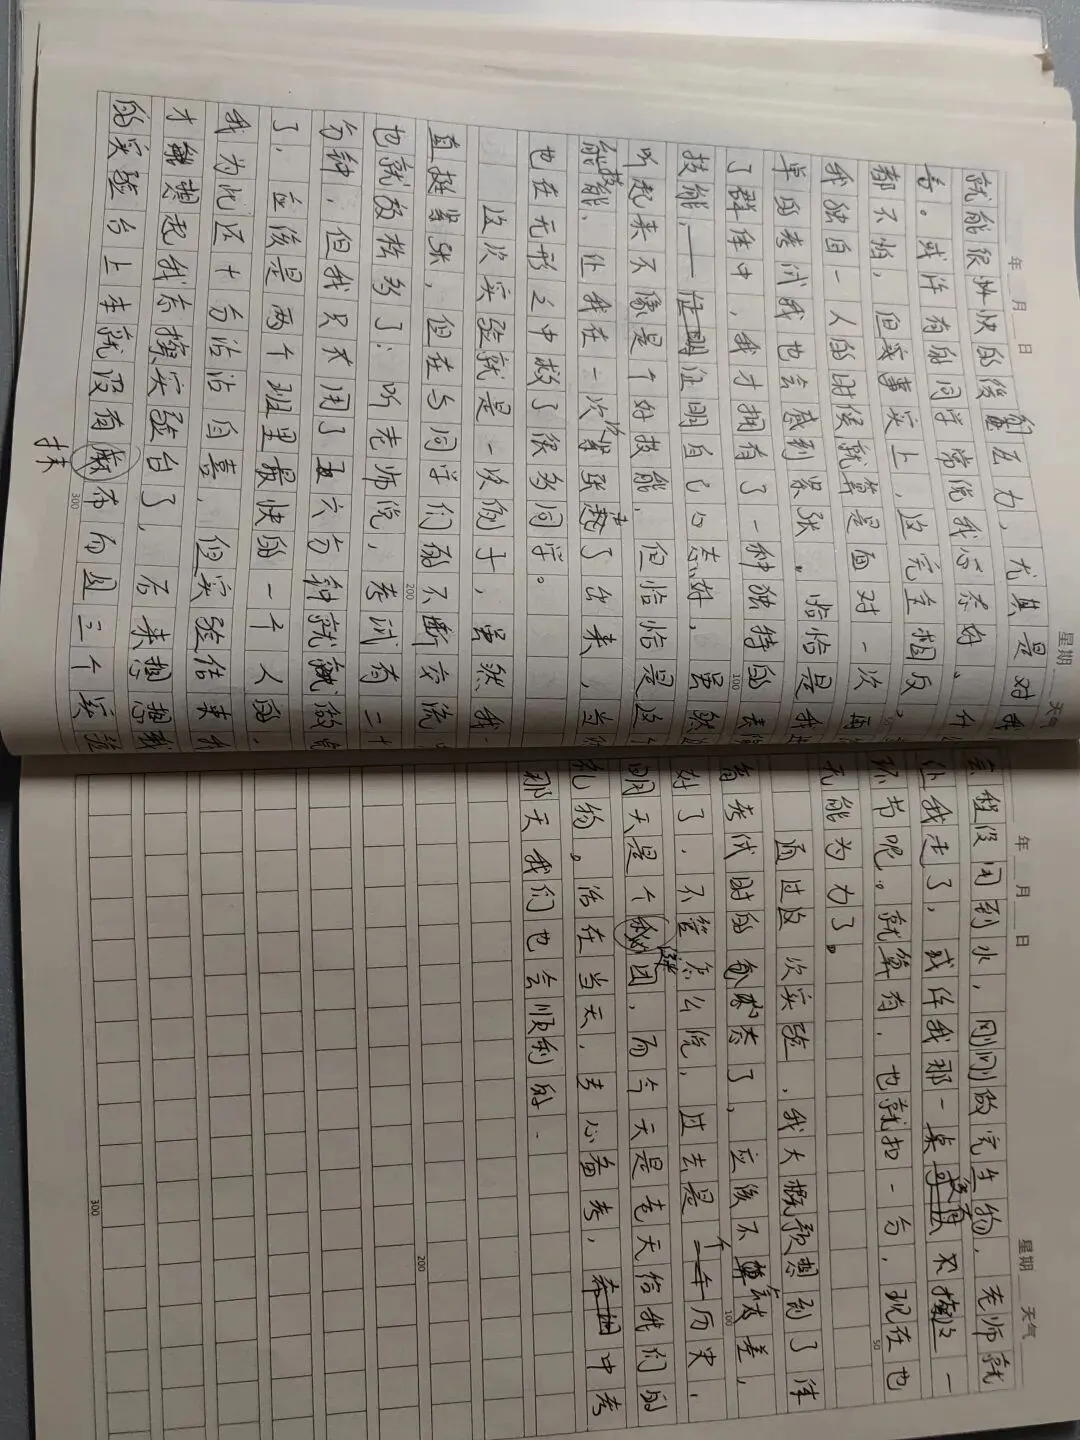 年 月 日 星期 天气
就能很快的缓解压力,尤其是对我
言。或许有的同学常说我心态好、什
都不怕,但或事实上,这完全相反,
我独自一人的时候就算是面对一次再
单的考试我也会感到紧张。恰恰是我
了群体中,我才拥有了一种独特的
100
技能,——证明自己心态好,虽然
听起来不像是个好技能,但恰恰是这
能技能,让我在一次次紧张走了出来,
也在无形之中救了很多同学。
这次实验就是一次例子,虽然我一
直挺紧张,但在与同学们的不断交流
200
也就放松多了;听老师说,考试有二十
分钟,但我只不用了五六分钟就就做完
了,应该是两个班里最快的一个人的,
我为此还十分沾沾自喜,但实验结束我
才能想起我忘擦实验台了,后来想想我
的实验台上本就没有抹布而且三个实验
抹
300
年 月 日 星期 天气
全程没用到水,刚刚做完生物,老师就
让我走了,或许我那一桌没有不擦这一
环节呢。就算有,也就扣一分,现在也
50
无能为力了。
通过这次实验,我大概预想到了体
育考试时的状态了,应该不会太差,
100
好了,不管怎么说,过去是个历史,
明天是个谜团,而今天是老天给我们的
礼物。活在当天,去心备考,中考
那天我们也会顺利的.
200
300